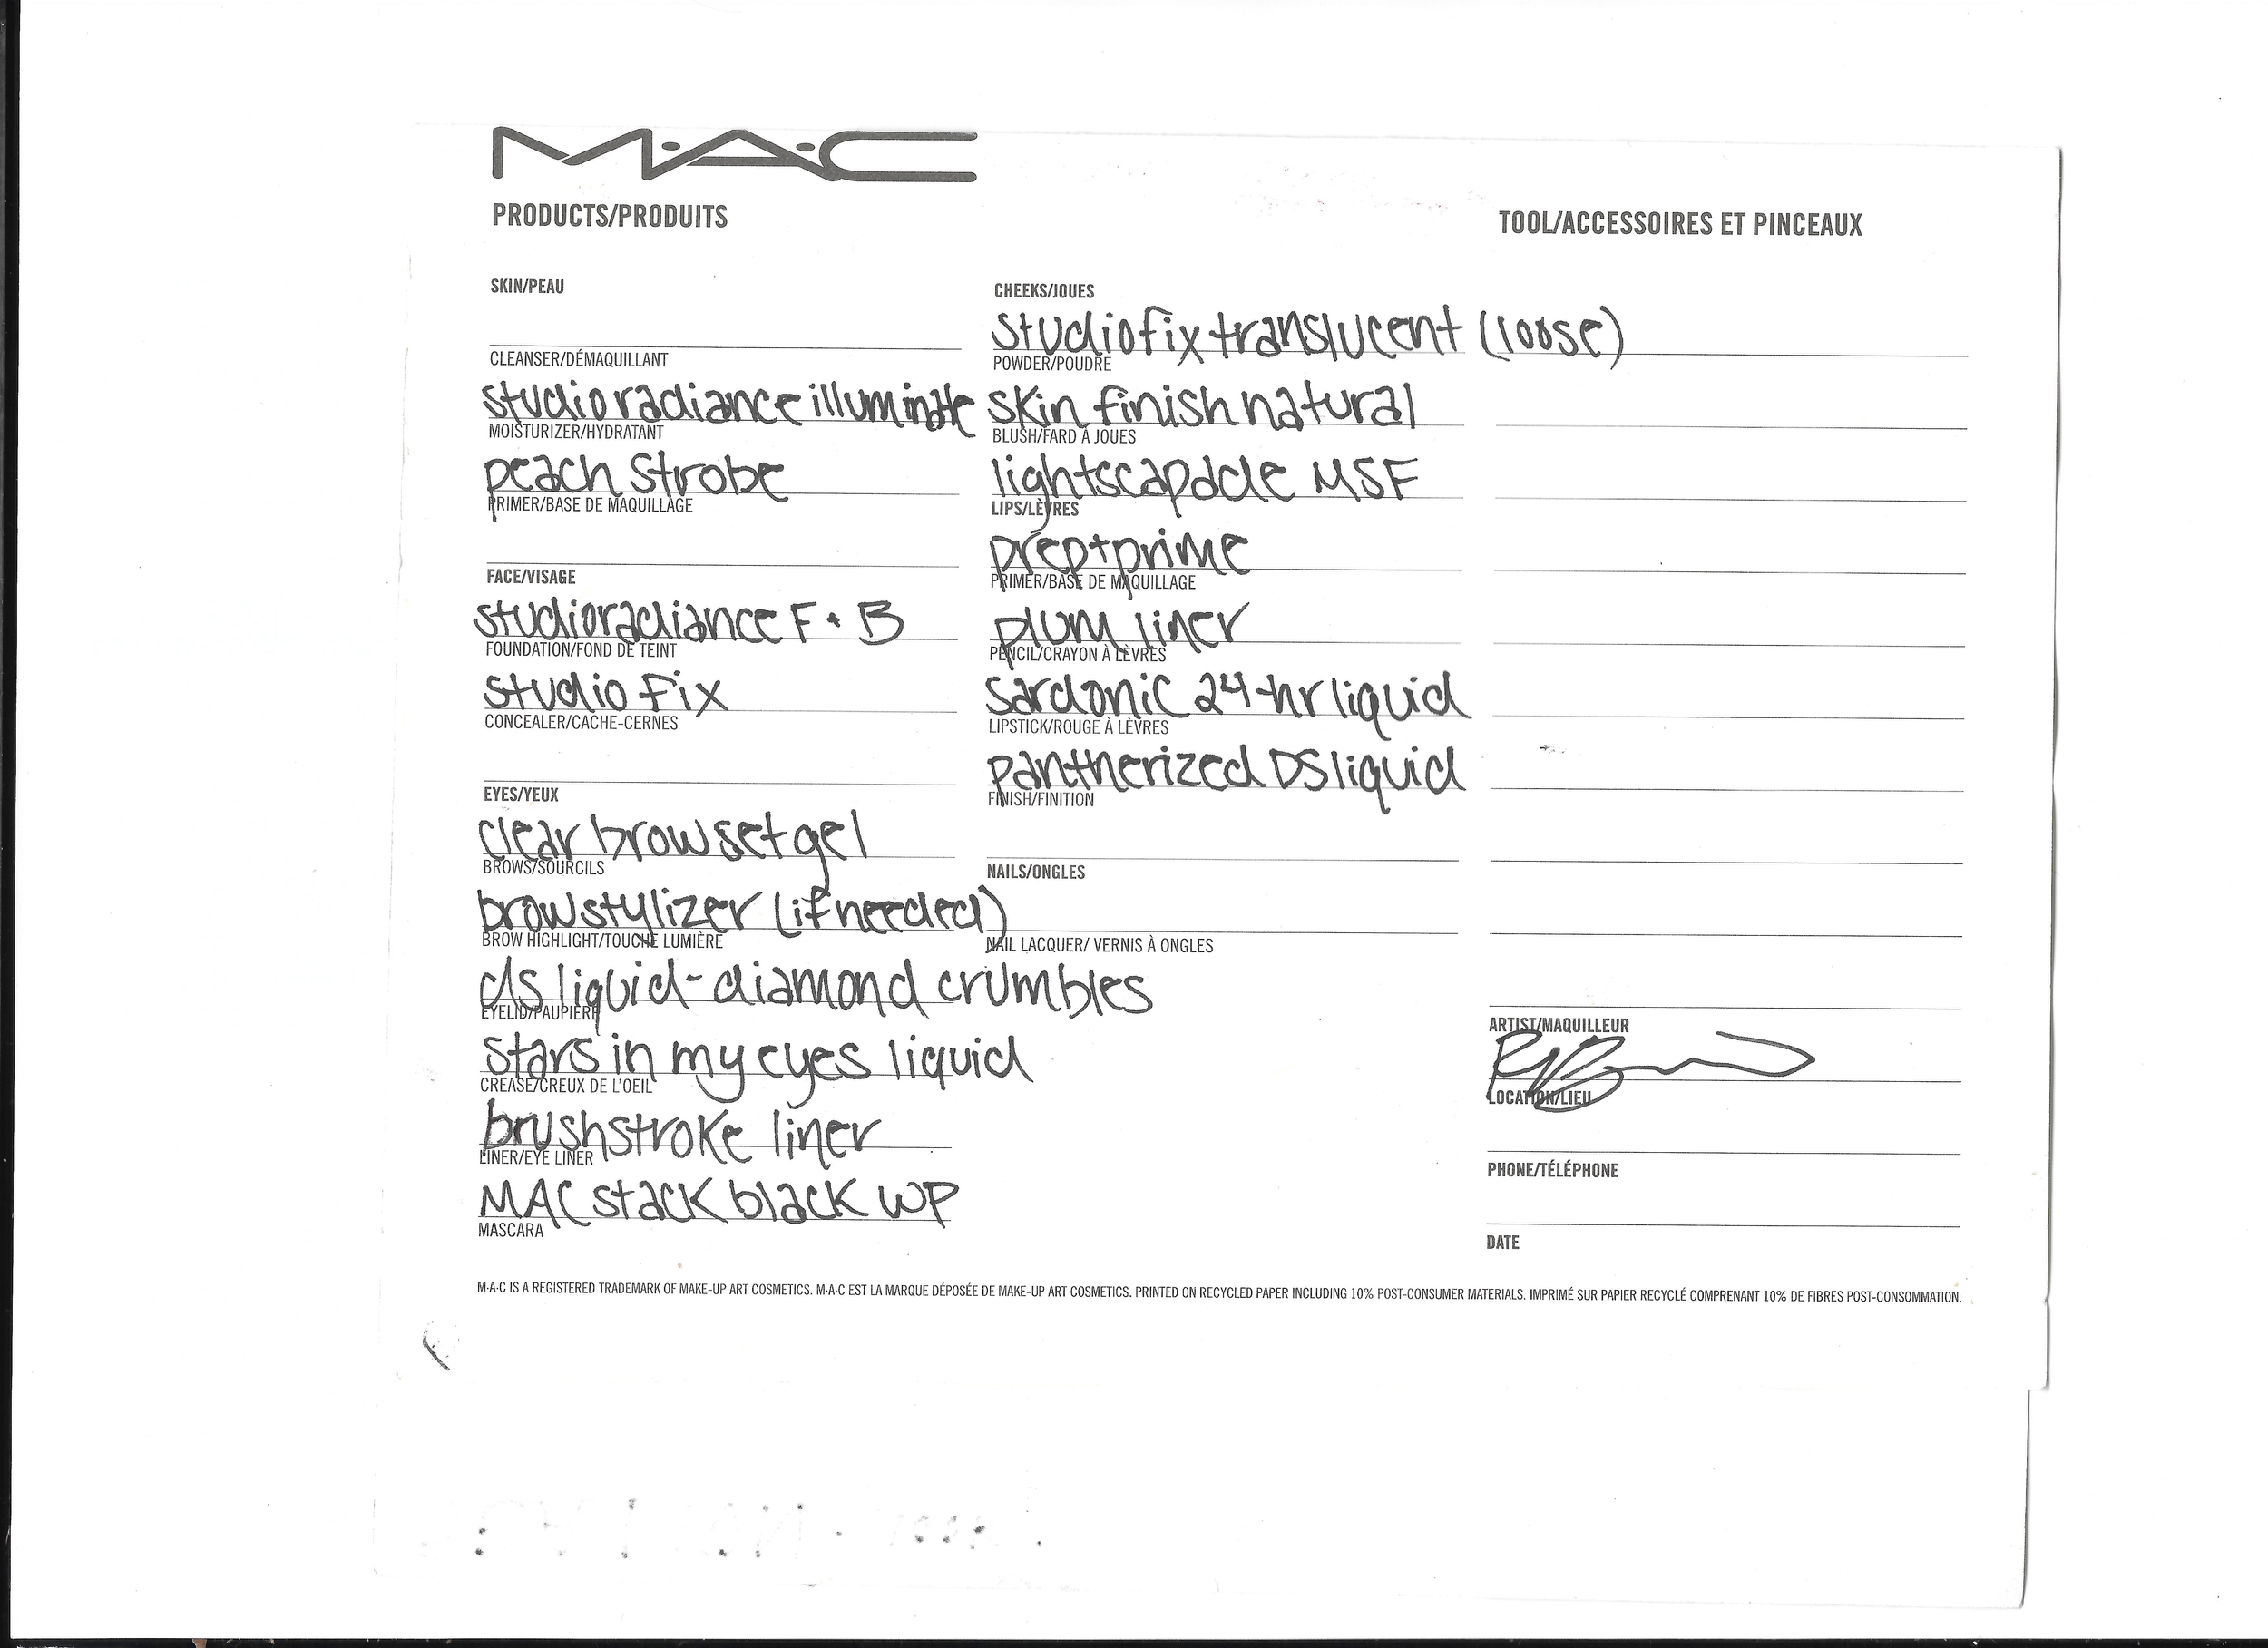 M·A·C
PRODUCTS/PRODUITS
SKIN/PEAU
CLEANSER/DÉMAQUILLANT
studio radiance illuminate
MOISTURIZER/HYDRATANT
peach strobe
PRIMER/BASE DE MAQUILLAGE
FACE/VISAGE
studio radiance F + B
FOUNDATION/FOND DE TEINT
studio fix
CONCEALER/CACHE-CERNES
EYES/YEUX
clear brow set gel
BROWS/SOURCILS
brow stylizer (if needed)
BROW HIGHLIGHT/TOUCHE LUMIÈRE
ds liquid - diamond crumbles
EYELID/PAUPIÈRE
stars in my eyes liquid
CREASE/CREUX DE L'OEIL
brushstroke liner
LINER/EYE LINER
MAC stack black WP
MASCARA
CHEEKS/JOUES
studio fix translucent (loose)
POWDER/POUDRE
skin finish natural
BLUSH/FARD À JOUES
lightscapade MSF
LIPS/LÈVRES
prep+prime
PRIMER/BASE DE MAQUILLAGE
plum liner
PENCIL/CRAYON À LÈVRES
sardonic 24-hr liquid
LIPSTICK/ROUGE À LÈVRES
pantherized DS liquid
FINISH/FINITION
NAILS/ONGLES
NAIL LACQUER/ VERNIS À ONGLES
TOOL/ACCESSOIRES ET PINCEAUX
ARTIST/MAQUILLEUR
LOCATION/LIEU
PHONE/TÉLÉPHONE
DATE
M·A·C IS A REGISTERED TRADEMARK OF MAKE-UP ART COSMETICS. M·A·C EST LA MARQUE DÉPOSÉE DE MAKE-UP ART COSMETICS. PRINTED ON RECYCLED PAPER INCLUDING 10% POST-CONSUMER MATERIALS. IMPRIMÉ SUR PAPIER RECYCLÉ COMPRENANT 10% DE FIBRES POST-CONSOMMATION.